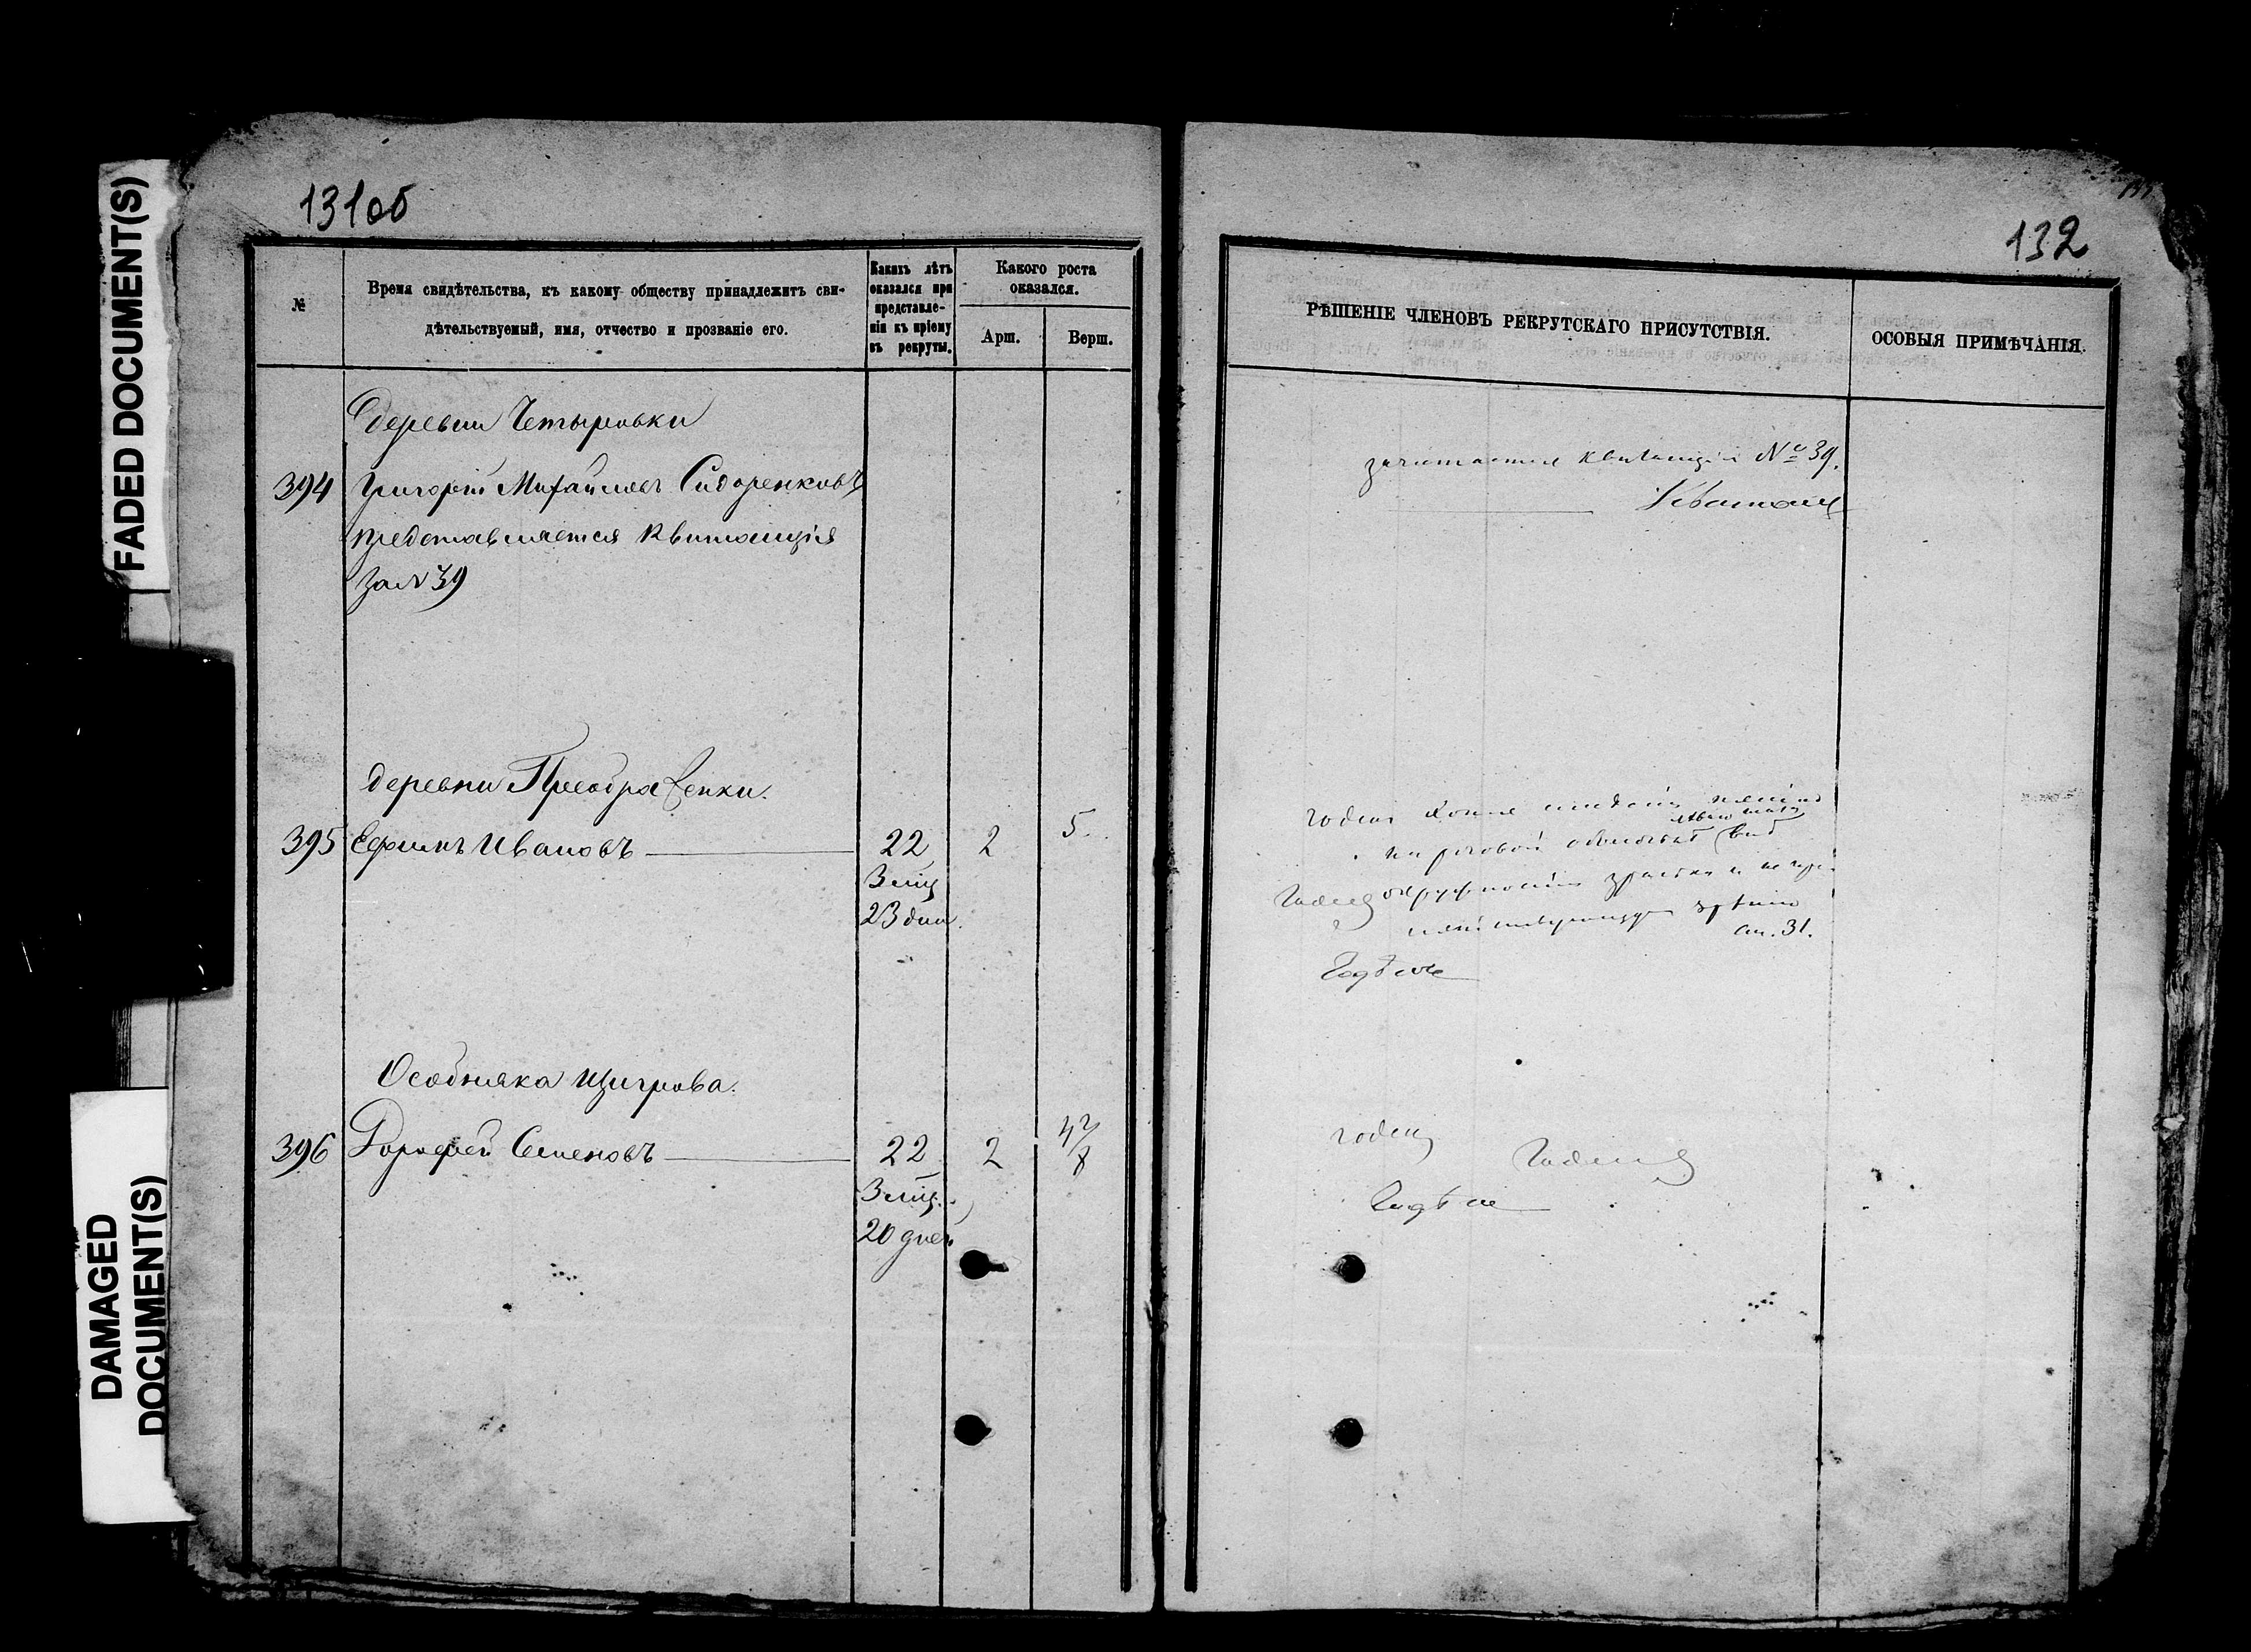 FADED DOCUMENT(S)
DAMAGED
DOCUMENT(S)
131об
№
Время свидѣтельства, къ какому обществу принадлежитъ сви-
дѣтельствуемый, имя, отчество и прозваніе его.
Какихъ лѣтъ
оказался при
представле-
ніи къ пріему
въ рекруты.
Какого роста
оказался.
Арш.
Верш.
деревни Четыровки
394 Григорій Михайловъ Сидоренковъ
представляется квитанція
за № 39
деревни Преображенки.
395 Ефимъ Ивановъ 22 2 5
3 мѣц
23 дни.
Особняка Щигрова.
396 Дорофей Семеновъ 22 2 4 7/8
3 мѣц.
20 дней.
132
РѢШЕНІЕ ЧЛЕНОВЪ РЕКРУТСКАГО ПРИСУТСТВІЯ.
ОСОБЫЯ ПРИМѢЧАНІЯ.
зачитается квитанція № 39.
годенъ
на роговой оболочкѣ
Годенъ окружности зрачка и не
зрѣнію
ст. 31.
Годѣнъ
годенъ
Годенъ
Годѣнъ